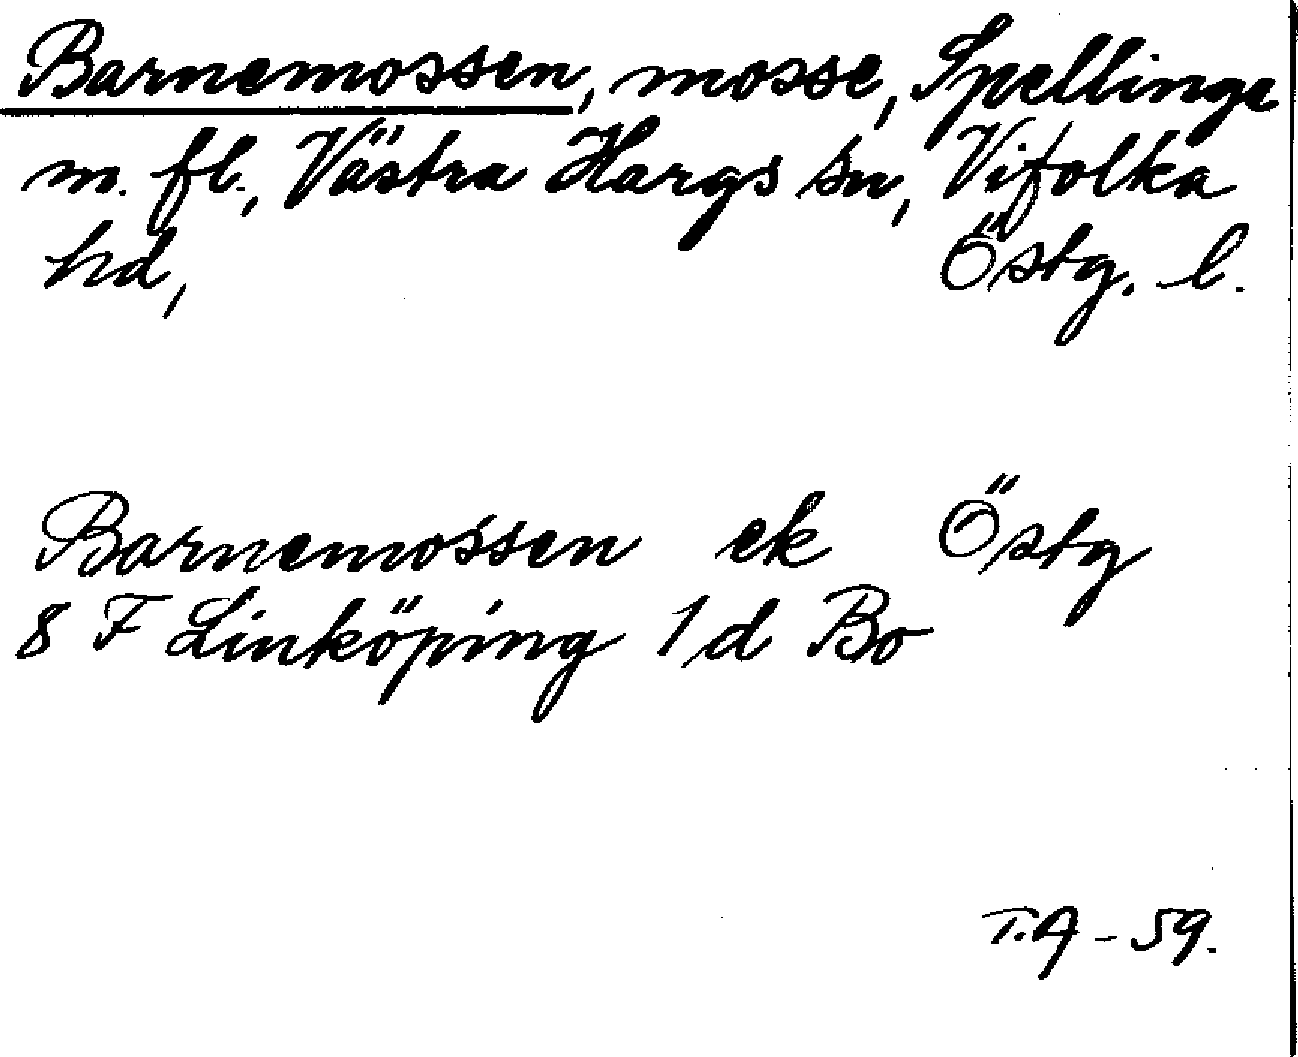 Barnemossen, mosse, Spellinge
m. fl., Västra Hargs sn, Vifolka
hd, Östg. l.
Barnemossen ek Östg
8 F Linköping 1 d Bo
T.A - 59.